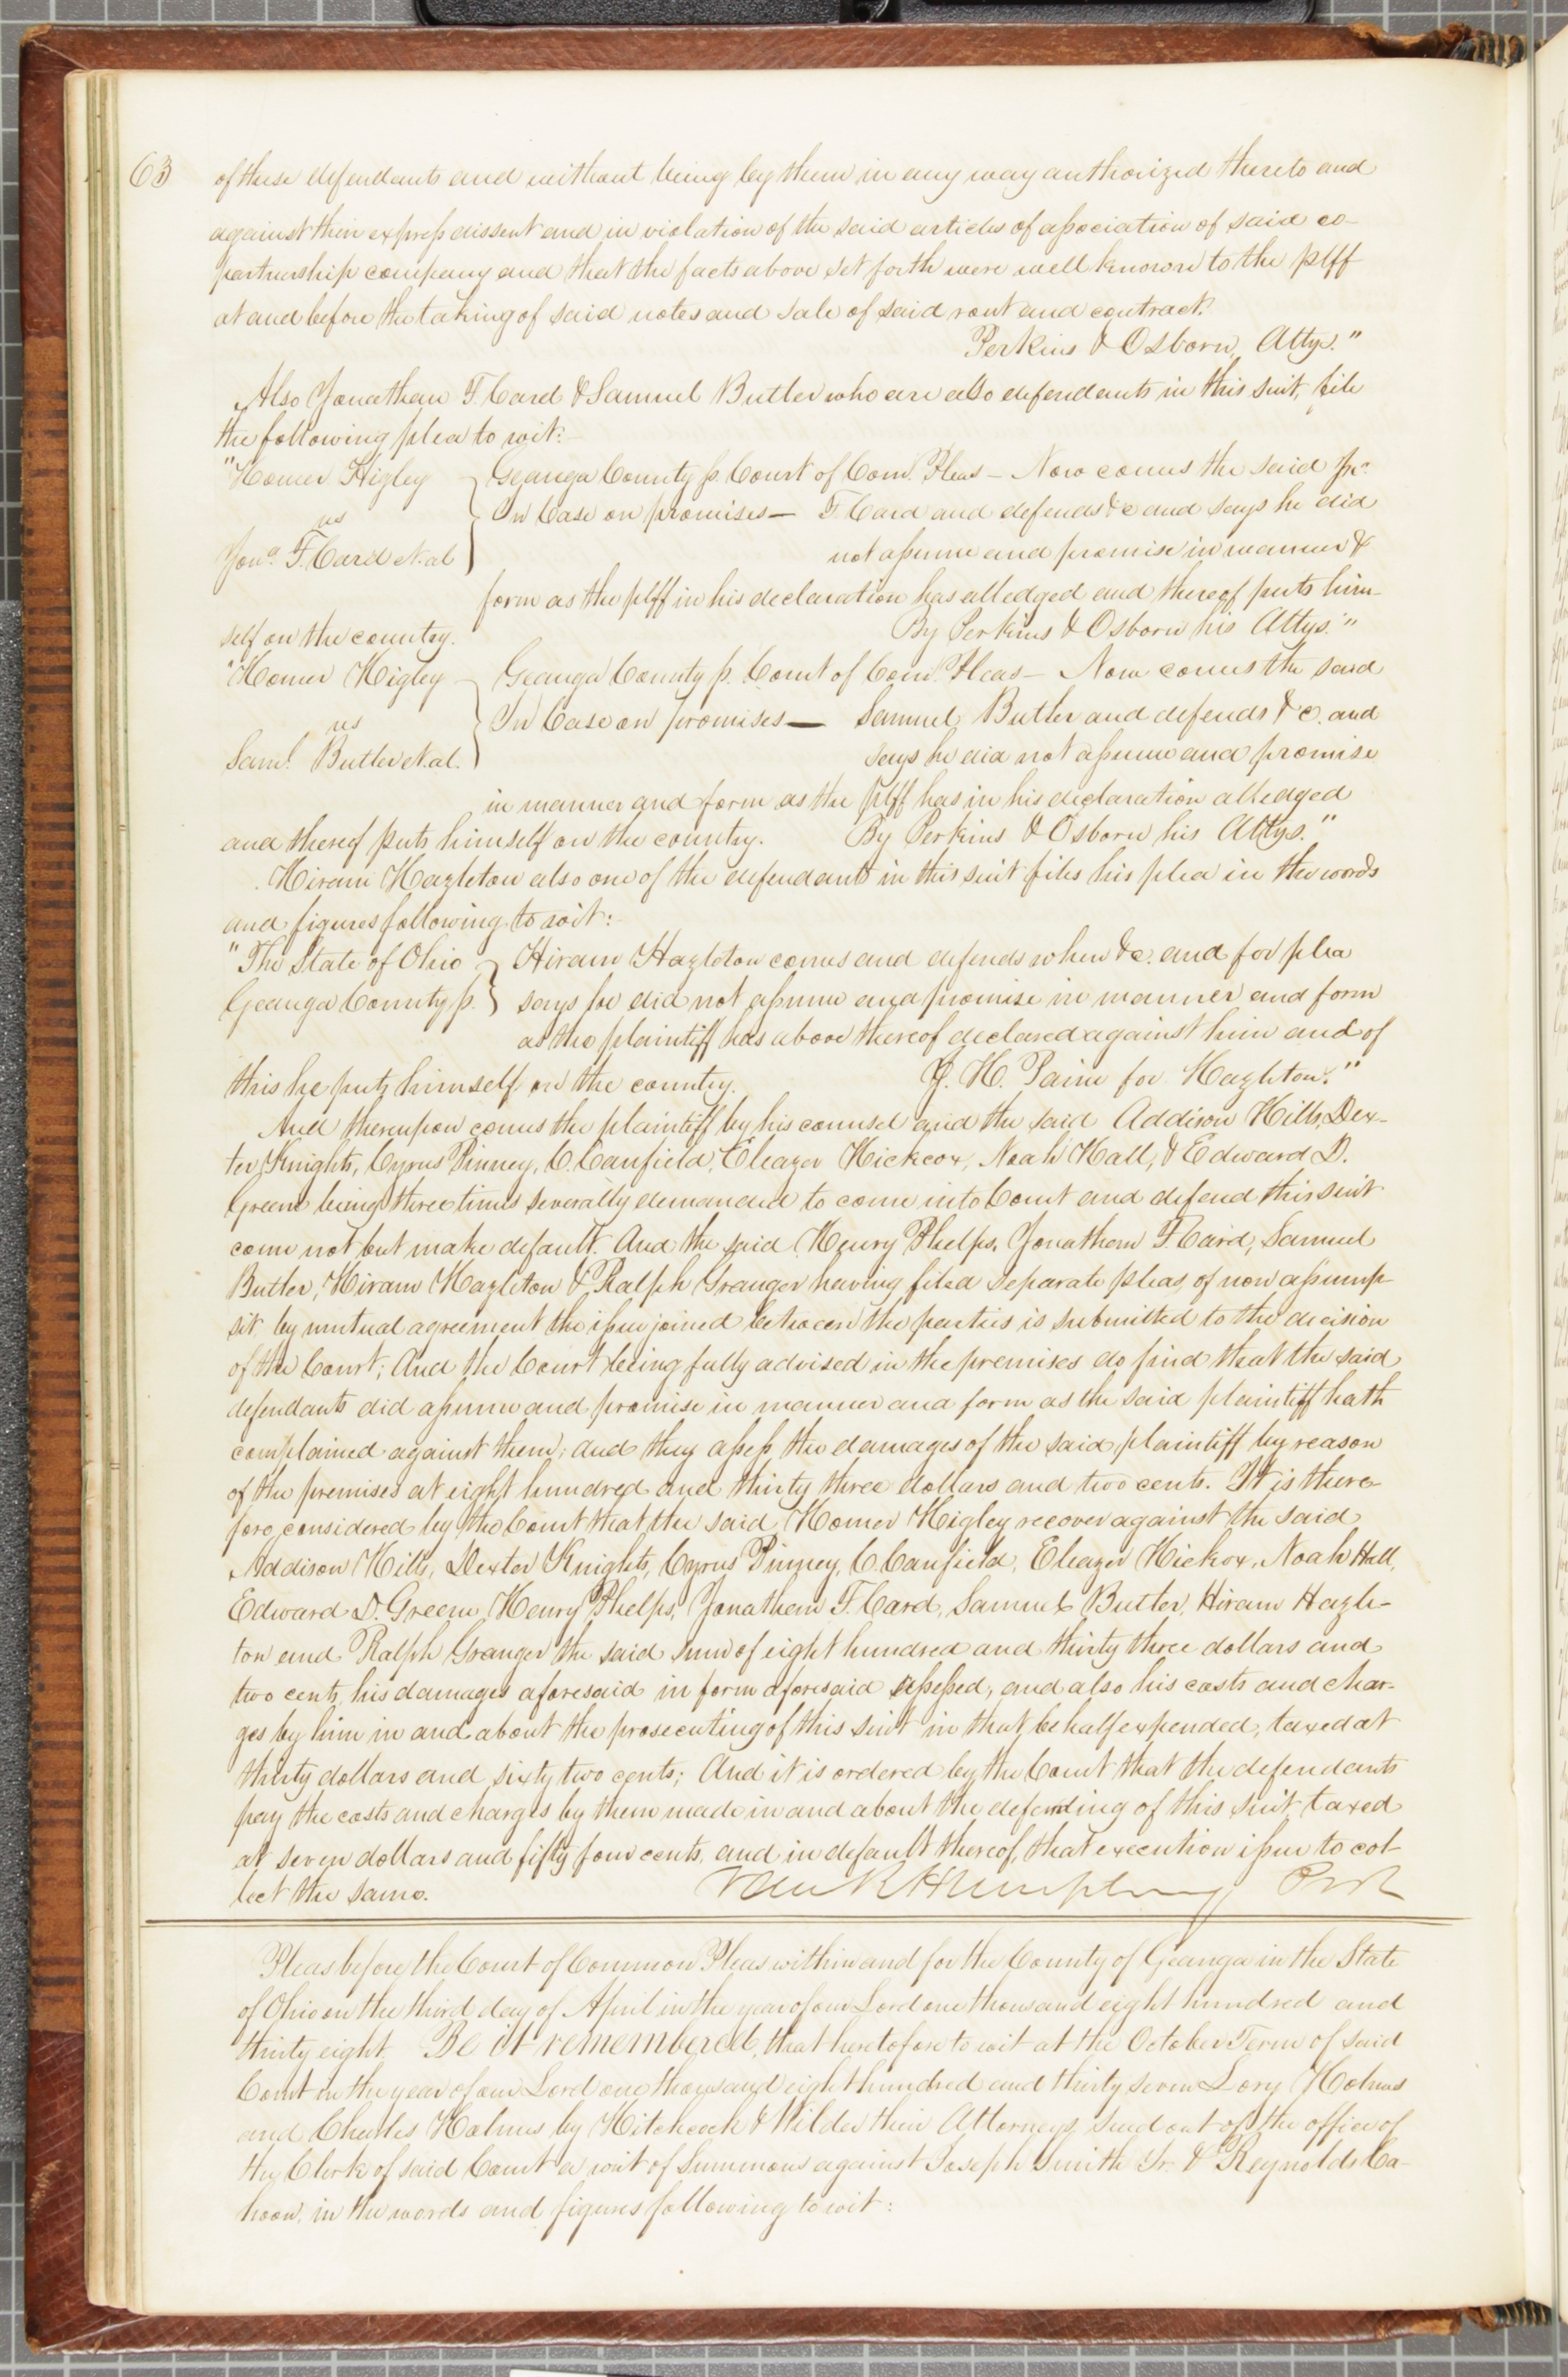 63
of these defendants and without being by them in any way authorized thereto and
against their express dissent and in violation of the said articles of association of said co-
partnership company and that the facts above set forth were well known to the plff
at and before the taking of said notes and sale of said rout and contract.
Perkins & Osborn, Attys."
Also Jonathan F. Card & Samuel Butler who are also defendants in this suit, file
the following plea to wit:
"Homer Higley } Geauga County ss. Court of Com. Pleas - Now comes the said Jno.
vs } In Case on promises - F. Card and defends &c and says he did
Jona. F. Card et. al } not assume and promise in manner &
form as the plff in his declaration has alledged and thereof puts him-
self on the country. By Perkins & Osborn his Attys."
"Homer Higley } Geauga County ss. Court of Com. Pleas - Now comes the said
vs } In Case on promises - Samuel Butler and defends &c. and
Saml. Butler et. al. } says he did not assume and promise
in manner and form as the plff has in his declaration alledged
and thereof puts himself on the country. By Perkins & Osborn his Attys."
Hiram Hazleton also one of the defendants in this suit files his plea in the words
and figures following to wit:
"The State of Ohio } Hiram Hazleton comes and defends when &c. and for plea
Geauga County ss. } says he did not assume and promise in manner and form
as the plaintiff has above thereof declared against him and of
this he puts himself on the country. J. H. Paine for Hazleton."
And thereupon comes the plaintiff by his counsel and the said Addison Hills, Dex-
ter Knights, Cyrus Pinney, C. Canfield, Eleazer Hickcox, Noah Hall, & Edward D.
Greene being three times severally demanded to come into Court and defend this suit
come not but make default. And the said Henry Phelps, Jonathan F. Card, Samuel
Butler, Hiram Hazleton & Ralph Granger having filed separate pleas of non assump-
sit by mutual agreement the issue joined between the parties is submitted to the decision
of the Court; And the Court being fully advised in the premises do find that the said
defendants did assume and promise in manner and form as the said plaintiff hath
complained against them; and they assess the damages of the said plaintiff by reason
of the premises at eight hundred and thirty three dollars and two cents. It is there-
fore considered by the Court that the said Homer Higley recover against the said
Addison Hills, Dexter Knights, Cyrus Pinney, C. Canfield, Eleazer Hickox, Noah Hall,
Edward D. Greene, Henry Phelps, Jonathan F. Card, Samuel Butler, Hiram Hazle-
ton and Ralph Granger the said sum of eight hundred and thirty three dollars and
two cents, his damages aforesaid in form aforesaid assessed, and also his costs and char-
ges by him in and about the prosecuting of this suit in that behalf expended, taxed at
thirty dollars and sixty two cents; And it is ordered by the Court that the defendants
pay the costs and charges by them made in and about the defending of this suit taxed
at seven dollars and fifty four cents, and in default thereof, that execution issue to col-
lect the same. Van R Humphrey
Pleas before the Court of Common Pleas within and for the County of Geauga in the State
of Ohio on the third day of April in the year of our Lord one thousand eight hundred and
thirty eight. Be it remembered, that heretofore to wit at the October Term of said
Court in the year of our Lord one thousand eight hundred and thirty seven Lory Holmes
and Charles Holmes by Hitchcock & Wilder their Attorneys sued out of the office of
the Clerk of said Court a writ of Summons against Joseph Smith Jr. & Reynolds Ca-
hoon, in the words and figures following to wit: